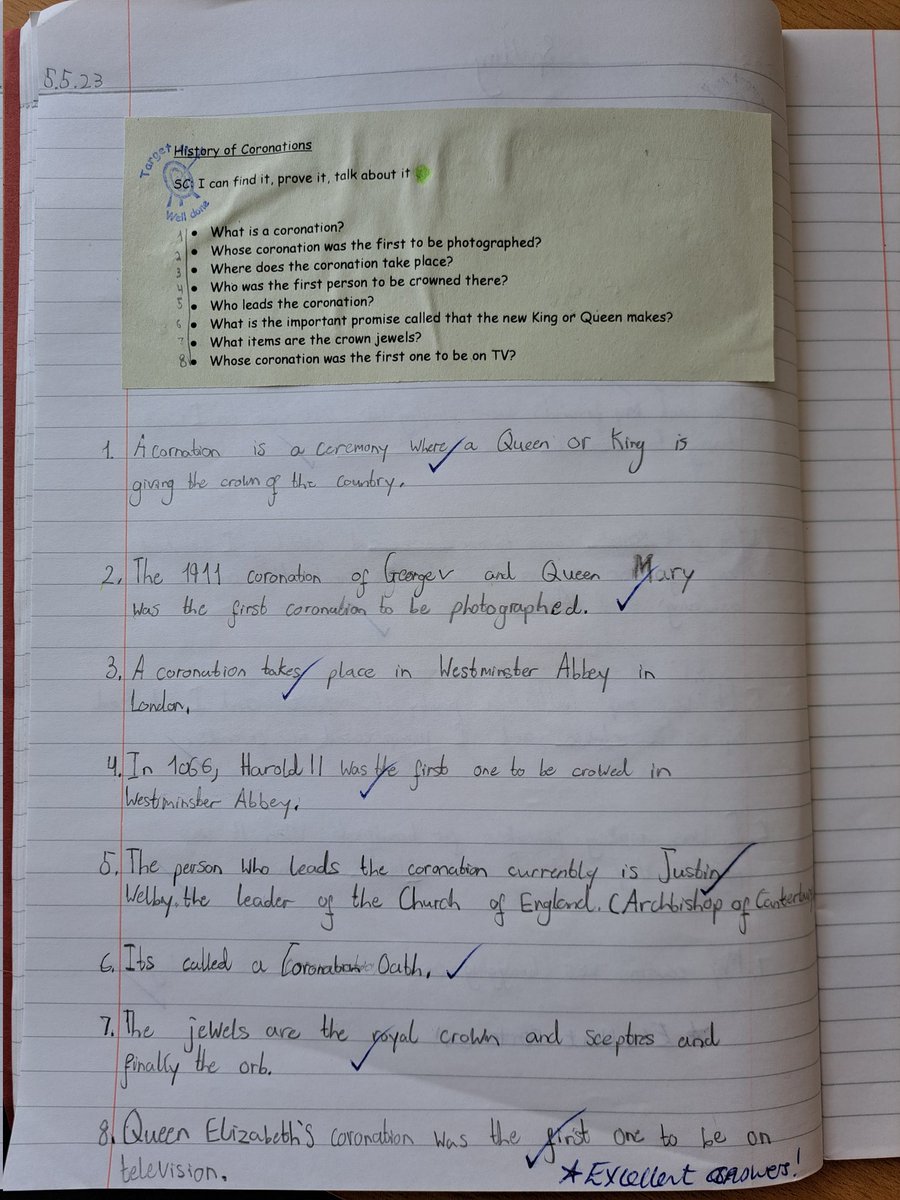 5.5.23
Target
History of Coronations
SC: I can find it, prove it, talk about it
Well done
1 • What is a coronation?
2 • Whose coronation was the first to be photographed?
3 • Where does the coronation take place?
4 • Who was the first person to be crowned there?
5 • Who leads the coronation?
6 • What is the important promise called that the new King or Queen makes?
7 • What items are the crown jewels?
8 • Whose coronation was the first one to be on TV?
1. A cornation is a ceremony where a Queen or King is
giving the crown of the country.
2. The 1911 coronation of George V and Queen Mary
was the first coronation to be photographed.
3. A coronation takes place in Westminster Abbey in
London.
4. In 1066, Harold II was the first one to be crowed in
Westminster Abbey.
5. The person who leads the coronation currently is Justin
Welby, the leader of the Church of England. (Archbishop of Canterbury
6. Its called a Coronation Oath.
7. The jewels are the royal crown and sceptres and
finally the orb.
8. Queen Elizabeth's coronation was the first one to be on
television.
★ Excellent answers!